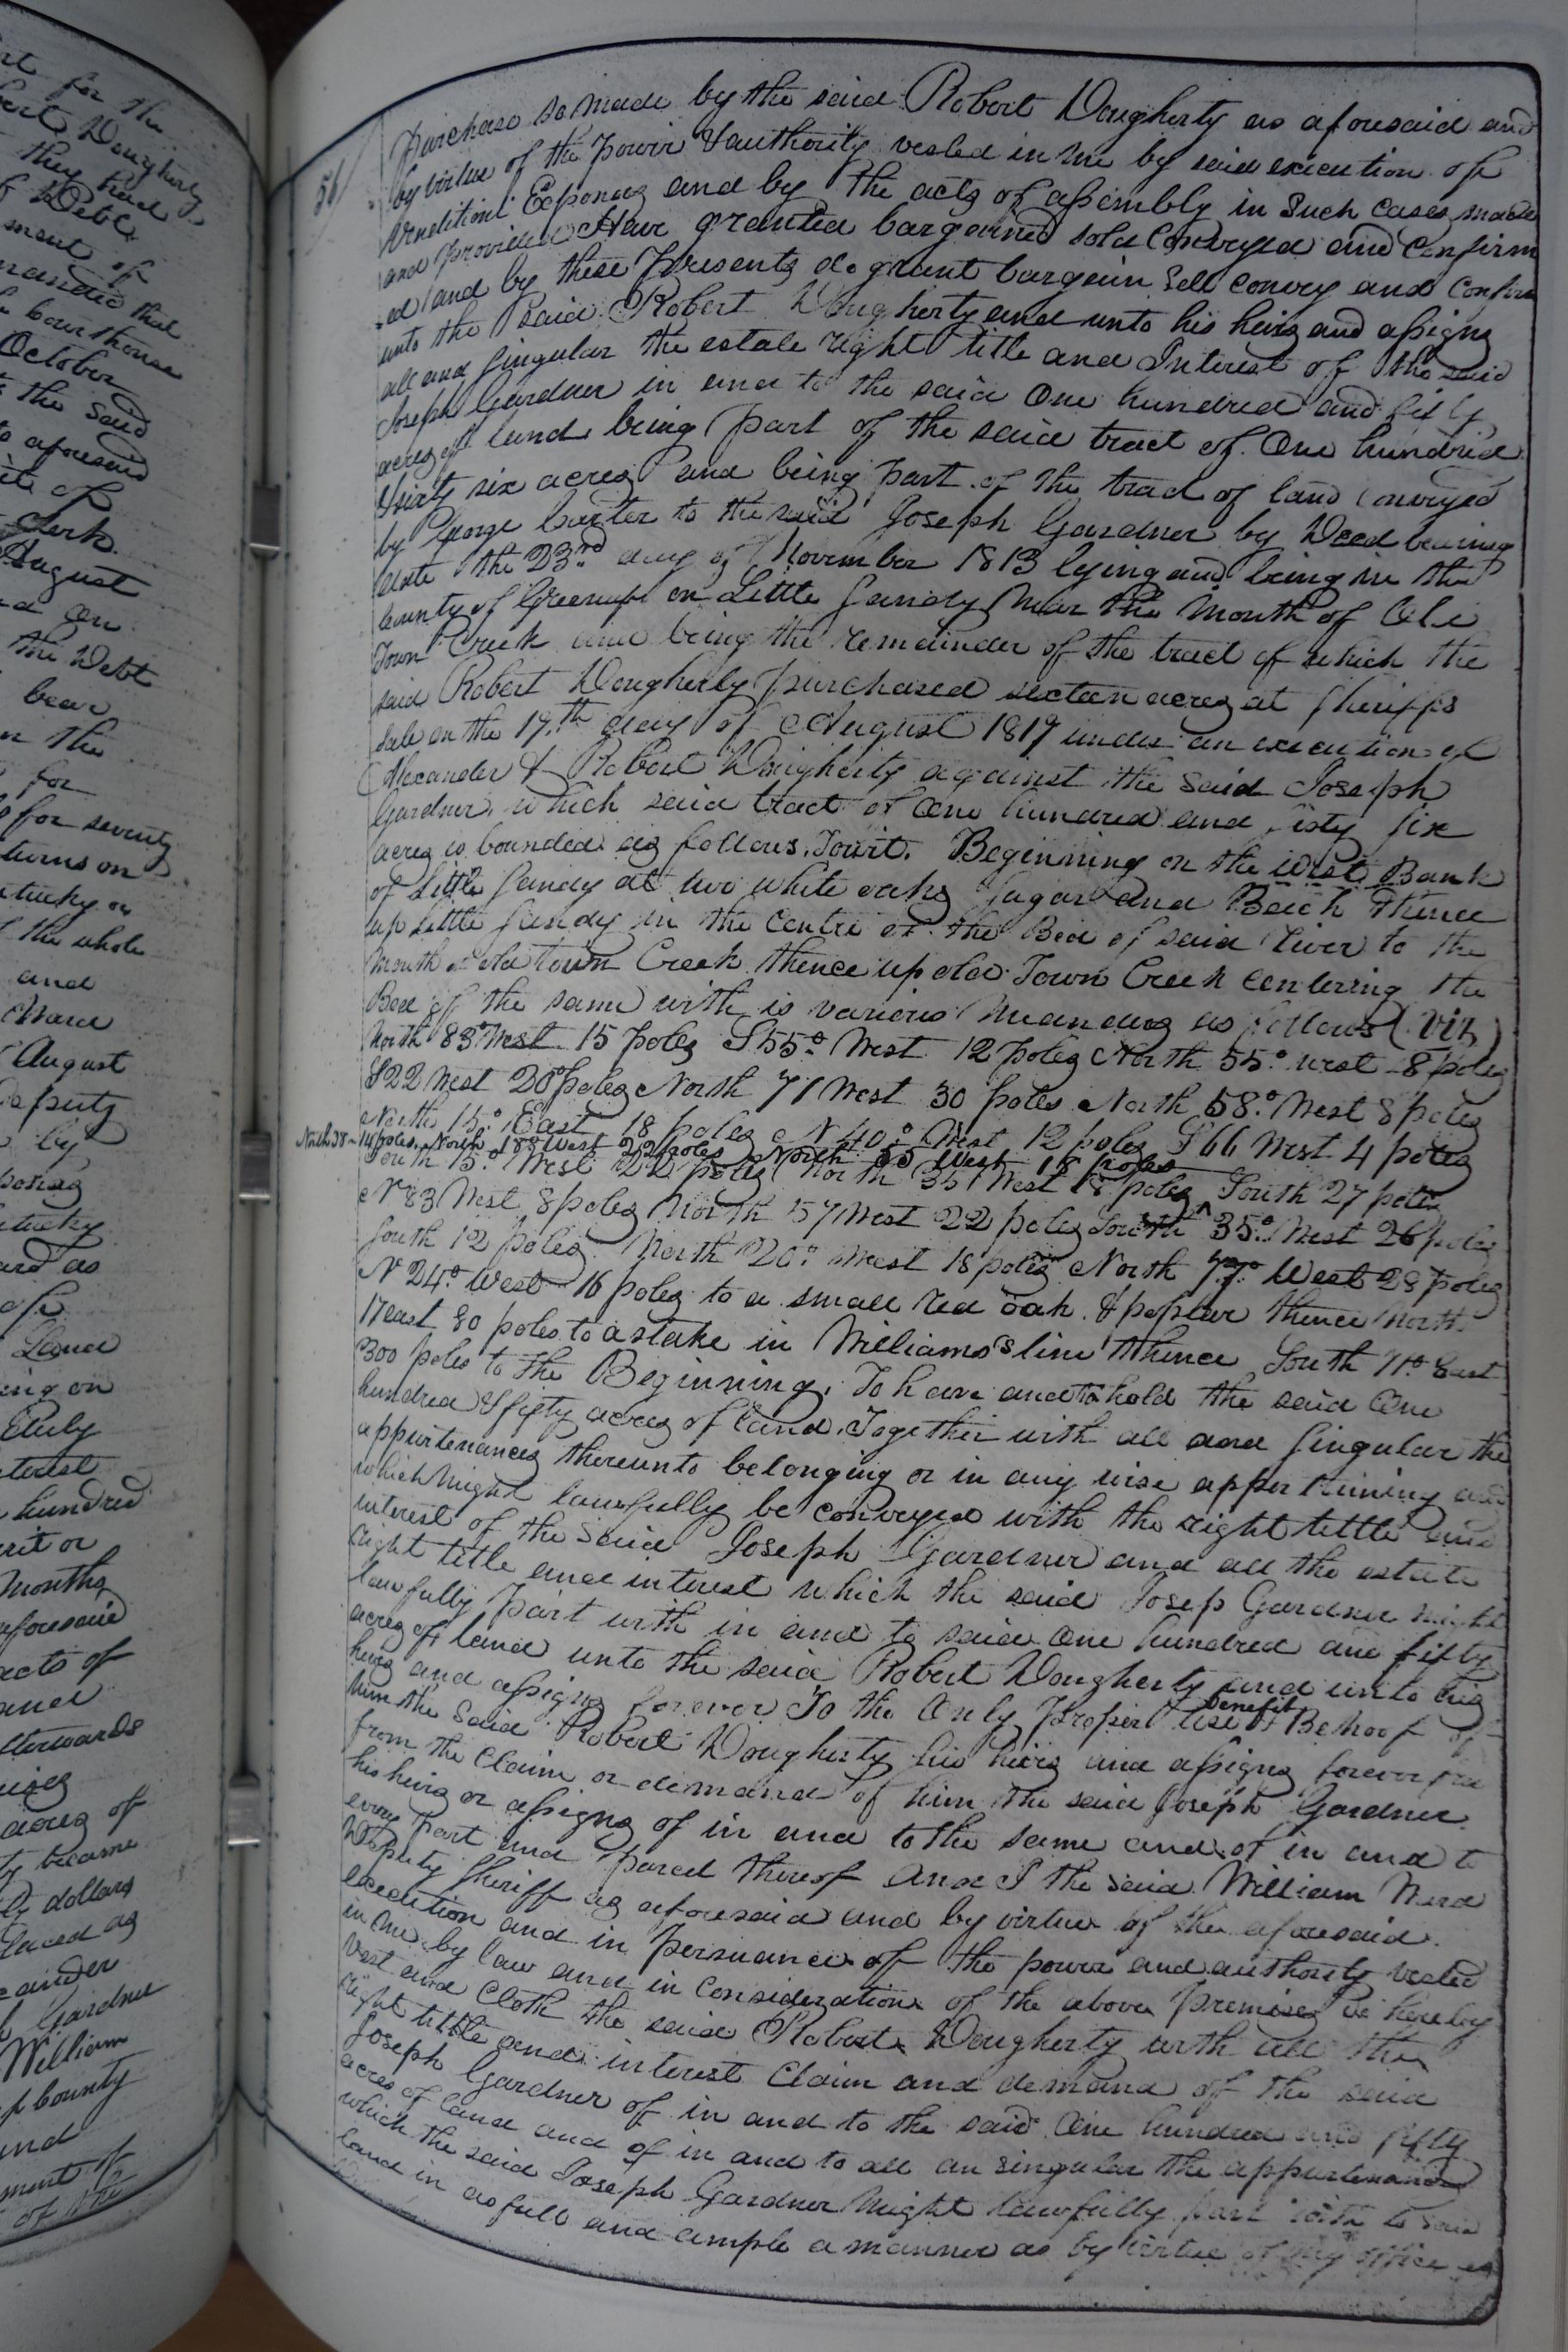 rt for the
bert Dougherty
they had
Debt
ment of
mandic that
courthouse
October
the said
to aforesaid
ite of
Clerk
August
d on
the Debt
bear
n the
for
for seventy
turns on
tucky on
the whole
and
Ward
August
Deputy
by
ponas
tucky
ard as
of
Land
ing on
duly
terest
hundred
rit or
months
aforesaid
acts of
and
fterwards
acres of
ty became
ty dollars
laced as
Gardner
William
p County
and
ment of
of the
56
Purchase so made by the said Robert Dougherty as aforesaid and
by virtue of the Power & authority vested in me by said execution of
Venditioni Exponas and by the acts of assembly in Such Cases made
and provided Have granted bargained sold Conveyed and Confirm
ed and by these Presents do grant bargain Sell Convey and Confirm
unto the said Robert Dougherty and unto his heirs and assigns
all and Singular the estate right title and Interest of the said
Joseph Gardner in and to the said One hundred and fifty
acres of land being part of the said tract of One hundred
thirty six acres and being part of the tract of land Conveyed
by George Carter to the said Joseph Gardner by Deed bearing
date the 23rd day of November 1813 lying and being in the
County of Greenup on Little Sandy Near the Mouth of Old
Town Creek and being the remainder of the tract of which the
said Robert Dougherty purchased sixteen acres at Sheriffs
Sale on the 19.th day of August 1819 under an execution of
Alexander & Robert Dougherty against the said Joseph
Gardner, which said tract of One hundred and sixty six
acres is bounded as follows, Towit. Beginning on the West Bank
of Little Sandy at two white oaks Sugar and Beich Thence
up Little Sandy in the Centre of the Bed of said River to the
Mouth of old Town Creek thence up old Town Creek Centering the
Bed of the same with is various Meanders as follows (Viz)
North 83° West 15 poles S 55° West 12 poles North 55° West 8 poles
S 22 West 20 poles North 71 West 30 poles North 58° West 8 poles
North 15° East 18 poles N 40° West 12 poles S 66 West 4 poles
North 38 - 14 poles, North 188 West 22 poles North 55 West 18 poles
South 15° West 22 poles North 35 West 18 poles ^ South 27 poles
N 83 West 8 poles North 57 West 22 poles South 35° West 26 poles
South 12 poles North 20° West 18 poles North 77° West 28 poles
N 24° West 16 poles to a small red oak & poplar thence North
17 east 80 poles to a stake in Williams's line thence South 71° East
300 poles to the Beginning, To have and to hold the said One
hundred & fifty acres of land, Together with all and Singular the
appurtenances thereunto belonging or in any wise appertaining and
which Might lawfully be conveyed with the right tittle and
interest of the said Joseph Gardner and all the estate
right title and interest which the said Josep Gardner might
lawfully Part with in and to said One hundred and fifty
acres of land unto the said Robert Dougherty and unto his
heirs and assigns forever To the Only Proper Use benefit & Behoof of
him the Said Robert Dougherty his heirs and assigns forever free
from the Claim or demand of him the said Joseph Gardner
his heirs or assigns of in and to the same and of in and to
every Part and parcel thereof And I the said William Ward
Deputy Sheriff as aforesaid and by virtue of the aforesaid
execution and in Persuance of the power and authority vested
in me by law and in Consideration of the above Premises do hereby
Vest and Cloth the said Robert Dougherty with all the
right tittle and interest Claim and demand of the said
Joseph Gardner of in and to the said One hundred and fifty
acres of land and of in and to all an singular the appurtenances
which the said Joseph Gardner Might lawfully part with to said
land in as full and ample a manner as by virtue of my office